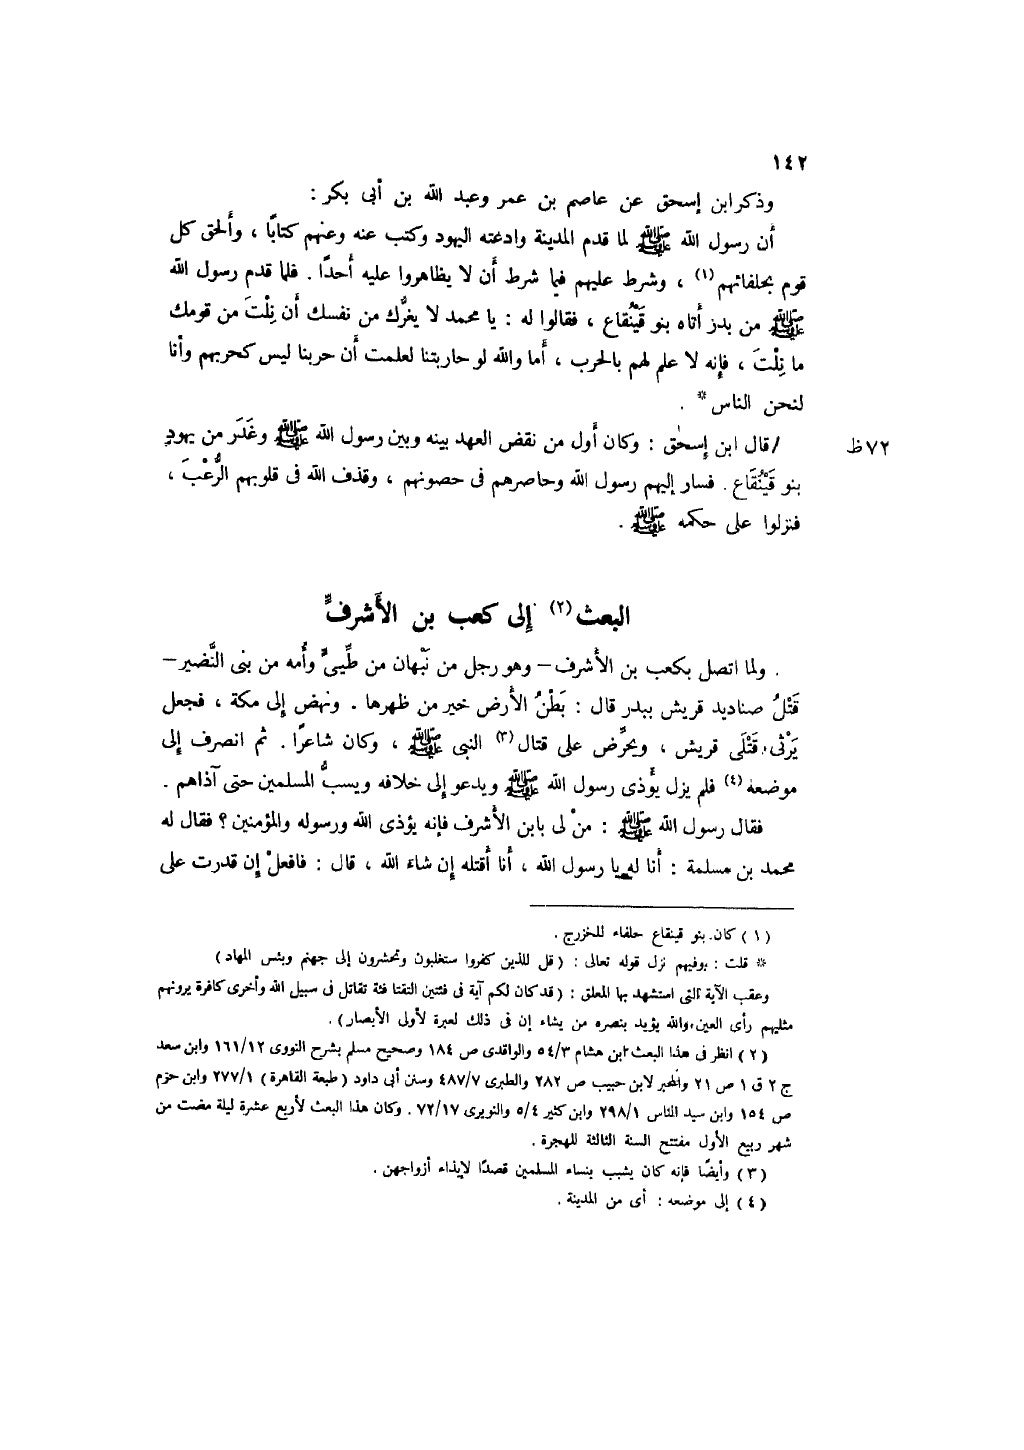 ١٤٢
وذكر ابن إسحق عن عاصم بن عمر وعبد الله بن أبى بكر :
أن رسول الله ﷺ لما قدم المدينة وادعته اليهود وكتب عنه وعنهم كتابًا ، وألحق كل
قوم بحلفائهم (١) ، وشرط عليهم فيما شرط أن لا يظاهروا عليه أحدًا . فلما قدم رسول الله
ﷺ من بدر أتاه بنو قَيْنُقاع ، فقالوا له : يا محمد لا يغرُّك من نفسك أن نِلْتَ من قومك
ما نِلْتَ ، فإنه لا علم لهم بالحرب ، أما والله لو حاربتنا لعلمت أن حربنا ليس كحربهم وأنا
لنحن الناس * .
/ قال ابن إسحٰق : وكان أول من نقض العهد بينه وبين رسول الله ﷺ وغَدَر من يهودٍ ٧٢ظ
بنو قَيْنُقَاع . فسار إليهم رسول الله وحاصرهم فى حصونهم ، وقذف الله فى قلوبهم الرُّعْبَ ،
فنزلوا على حكمه ﷺ .
البعث (٢) إلى كعب بن الأشرف
ولما اتصل بكعب بن الأشرف – وهو رجل من نَبْهان من طَيِّىءٍ وأُمه من بنى النَّضير –
قَتْلُ صناديد قريش ببدر قال : بَطْنُ الأرض خير من ظهرها . ونهض إلى مكة ، فجعل
يَرْثى قَتْلَى قريش ، ويحرِّض على قتال (٣) النبى ﷺ ، وكان شاعرًا . ثم انصرف إلى
موضعه (٤) فلم يزل يؤذى رسول الله ﷺ ويدعو إلى خلافه ويسبُّ المسلمين حتى آذاهم .
فقال رسول الله ﷺ : منْ لى بابن الأشرف فإنه يؤذى الله ورسوله والمؤمنين ؟ فقال له
محمد بن مسلمة : أنا له يا رسول الله ، أنا أقتله إن شاء الله ، قال : فافعلْ إن قدرت على
(١) كان بنو قينقاع حلفاء للخزرج .
* قلت : وفيهم نزل قوله تعالى : (قل للذين كفروا ستغلبون وتحشرون إلى جهنم وبئس المهاد)
وعقب الآية التى استشهد بها المعلق : (قد كان لكم آية فى فئتين التقتا فئة تقاتل فى سبيل الله وأخرى كافرة يرونهم
مثليهم رأى العين والله يؤيد بنصره من يشاء إن فى ذلك لعبرة لأولى الأبصار) .
(٢) انظر فى هذا البعث ابن هشام ٥٤/٣ والواقدى ص ١٨٤ وصحيح مسلم بشرح النووى ١٦١/١٢ وابن سعد
ج ٢ ق ١ ص ٢١ والمحبر لابن حبيب ص ٢٨٢ والطبرى ٤٨٧/٧ وسنن أبى داود (طبعة القاهرة) ٢٧٧/١ وابن حزم
ص ١٥٤ وابن سيد الناس ٢٩٨/١ وابن كثير ٥/٤ والنويرى ٧٢/١٧ . وكان هذا البعث لأربع عشرة ليلة مضت من
شهر ربيع الأول مفتتح السنة الثالثة للهجرة .
(٣) وأيضًا فإنه كان يشبب بنساء المسلمين قصدًا لإيذاء أزواجهن .
(٤) إلى موضعه : أى من المدينة .